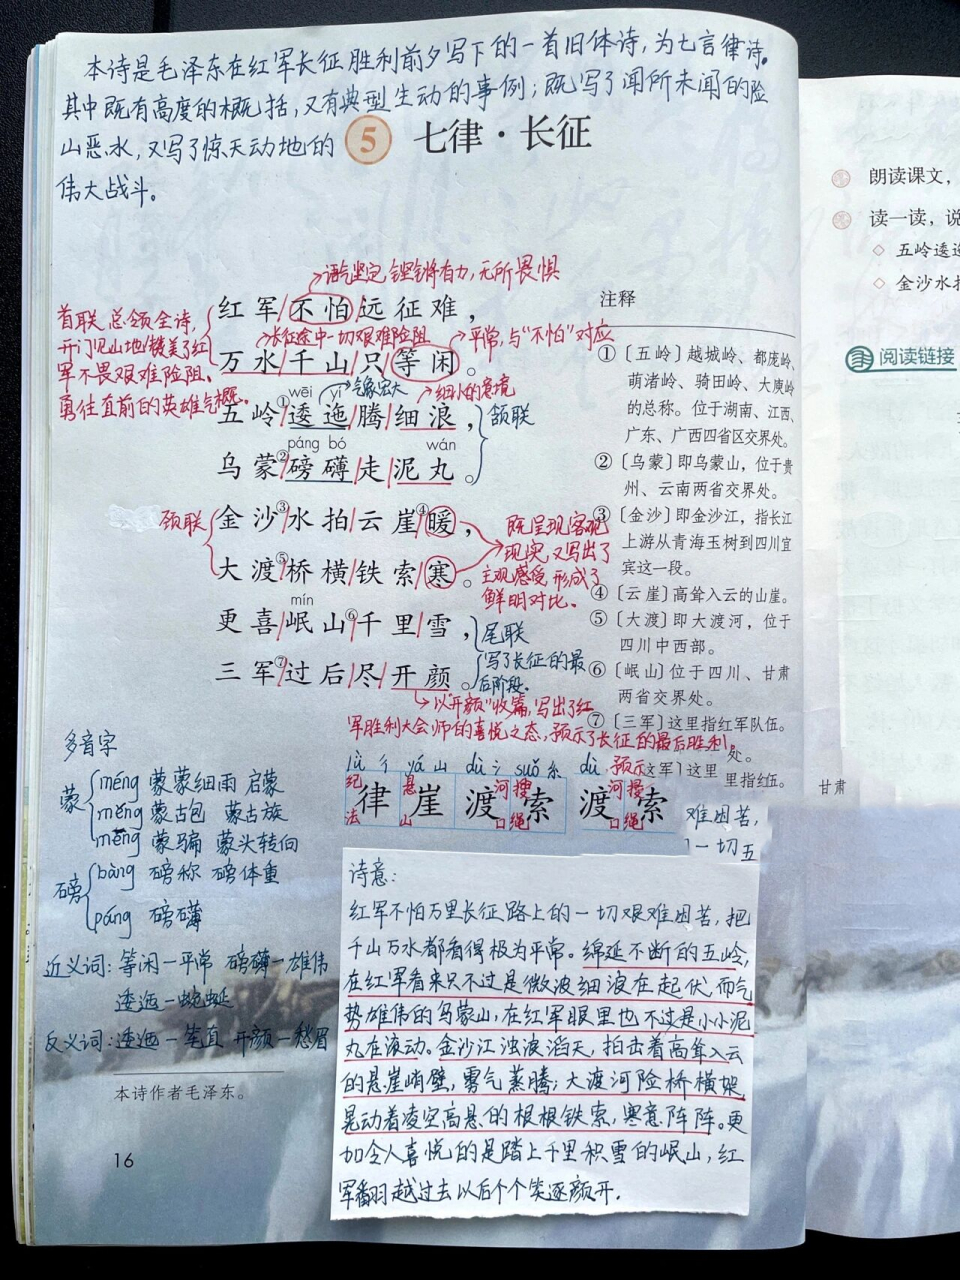 本诗是毛泽东在红军长征胜利前夕写下的一首旧体诗，为七言律诗。
其中既有高度的概括，又有典型生动的事例；既写了闻所未闻的险
山恶水，又写了惊天动地的
伟大战斗。
5 七律·长征
语气坚定 铿锵有力，无所畏惧
首联 总领全诗，
开门见山地赞美了红
军不畏艰难险阻、
勇往直前的英雄气概。
红军/不怕/远征难，
长征途中一切艰难险阻
平常，与“不怕”对应
万水/千山/只/等闲。
wēi yí
气象宏大
细小的意境
五岭①/逶迤/腾/细浪，
颔联
páng bó wán
乌蒙②/磅礴/走/泥丸。
颈联
金沙③/水拍/云崖④/暖，
大渡⑤/桥横/铁索/寒。
既呈现客观
现实，又写出了
主观感受，形成了
鲜明对比。
mín
更喜/岷山⑥/千里/雪，
三军⑦/过后/尽/开颜。
尾联
写了长征的最
后阶段。
以“开颜”收篇，写出了红
军胜利大会师的喜悦之态，预示了长征的最后胜利。
注释
①〔五岭〕越城岭、都庞岭、
萌渚岭、骑田岭、大庾岭
的总称。位于湖南、江西、
广东、广西四省区交界处。
②〔乌蒙〕即乌蒙山，位于贵
州、云南两省交界处。
③〔金沙〕即金沙江，指长江
上游从青海玉树到四川宜
宾这一段。
④〔云崖〕高耸入云的山崖。
⑤〔大渡〕即大渡河，位于
四川中西部。
⑥〔岷山〕位于四川、甘肃
两省交界处。
⑦〔三军〕这里指红军队伍。
处。
预示
这军〕这里
里指红伍。
甘肃
lǜ 彳 yá 山 dù 氵 suǒ 糸 dù
纪 悬 河 搜 河 搜
律 崖 渡 索 渡 索
法 山 口 绳 口 绳
难困苦，
一切五
多音字
蒙
méng 蒙蒙细雨 启蒙
měng 蒙古包 蒙古族
mēng 蒙骗 蒙头转向
磅
bàng 磅称 磅体重
páng 磅礴
近义词：等闲—平常 磅礴—雄伟
逶迤—蜿蜒
反义词：逶迤—笔直 开颜—愁眉
本诗作者毛泽东。
16
诗意：
红军不怕万里长征路上的一切艰难困苦，把
千山万水都看得极为平常。绵延不断的五岭，
在红军看来只不过是微波细浪在起伏，而气
势雄伟的乌蒙山，在红军眼里也不过是小小泥
丸在滚动。金沙江浊浪滔天，拍击着高耸入云
的悬崖峭壁，雾气蒸腾；大渡河险桥横架，
晃动着凌空高悬的根根铁索，寒意阵阵。更
加令人喜悦的是踏上千里积雪的岷山，红
军翻越过去以后个个笑逐颜开。
朗读课文，
读一读，说
五岭逶迤
金沙水拍
阅读链接